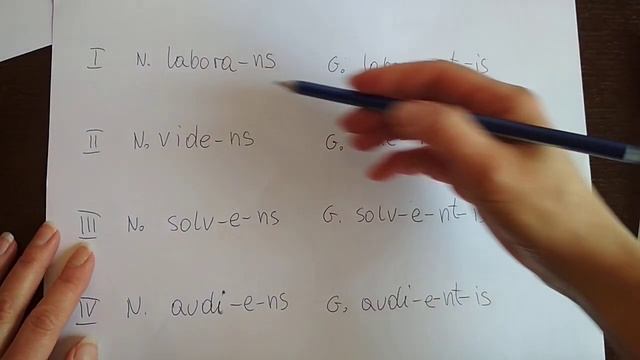 I N. labora-ns G. labora-nt-is
II N. vide-ns G.
III N. solv-e-ns G. solv-e-nt-is
IV N. audi-e-ns G. audi-e-nt-is